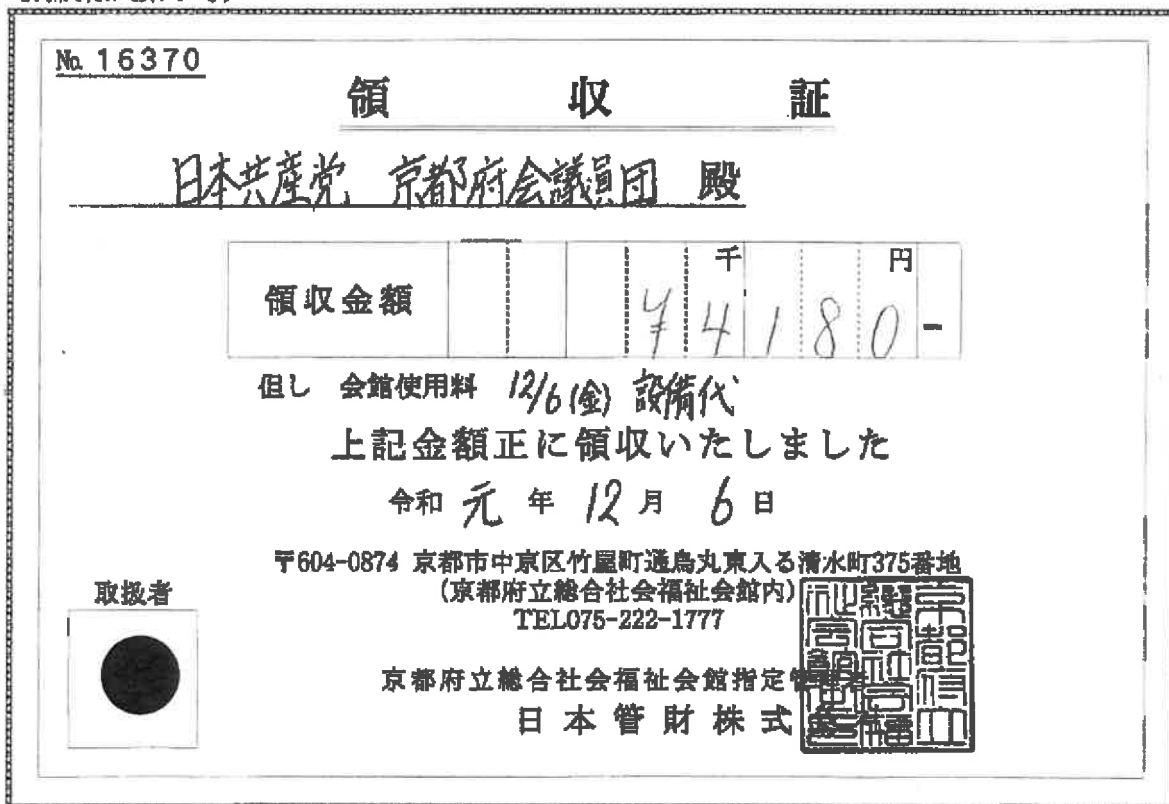 No. 16370
領収証
日本共産党 京都府会議員団 殿
千 円
領収金額 ¥4180-
但し 会館使用料 12/6(金) 設備代
上記金額正に領収いたしました
令和 元 年 12 月 6 日
〒604-0874 京都市中京区竹屋町通烏丸東入る清水町375番地
(京都府立総合社会福祉会館内)
TEL075-222-1777
取扱者
京都府立総合社会福祉会館指定管理者
日本管財株式